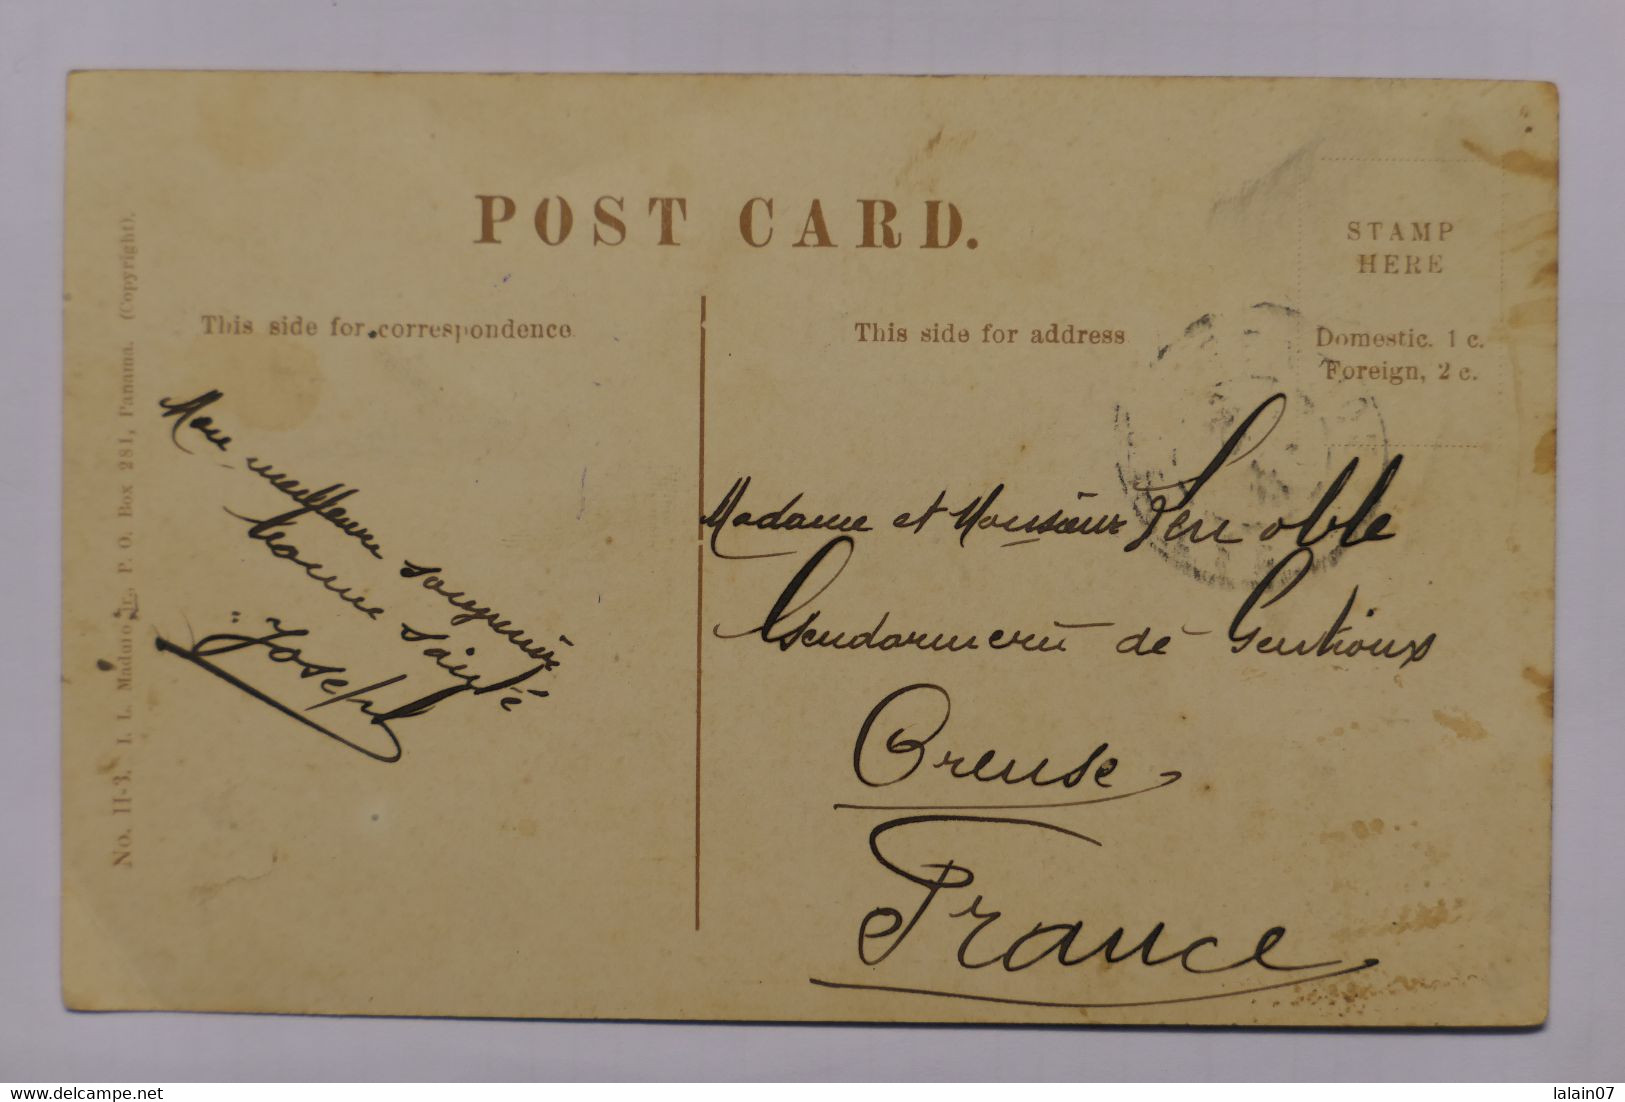 POST CARD.
STAMP
HERE
Domestic. 1 c.
Foreign, 2 c.
This side for correspondence.
This side for address
No. II-3. I. L. Maduro Jr., P. O. Box 281, Panama. (Copyright).
meilleure
bonne santé
"Joseph
Madame et Monsieur Lenoble
Gendarmerie de Gentioux
Creuse
France
www.delcampe.net
lalain07